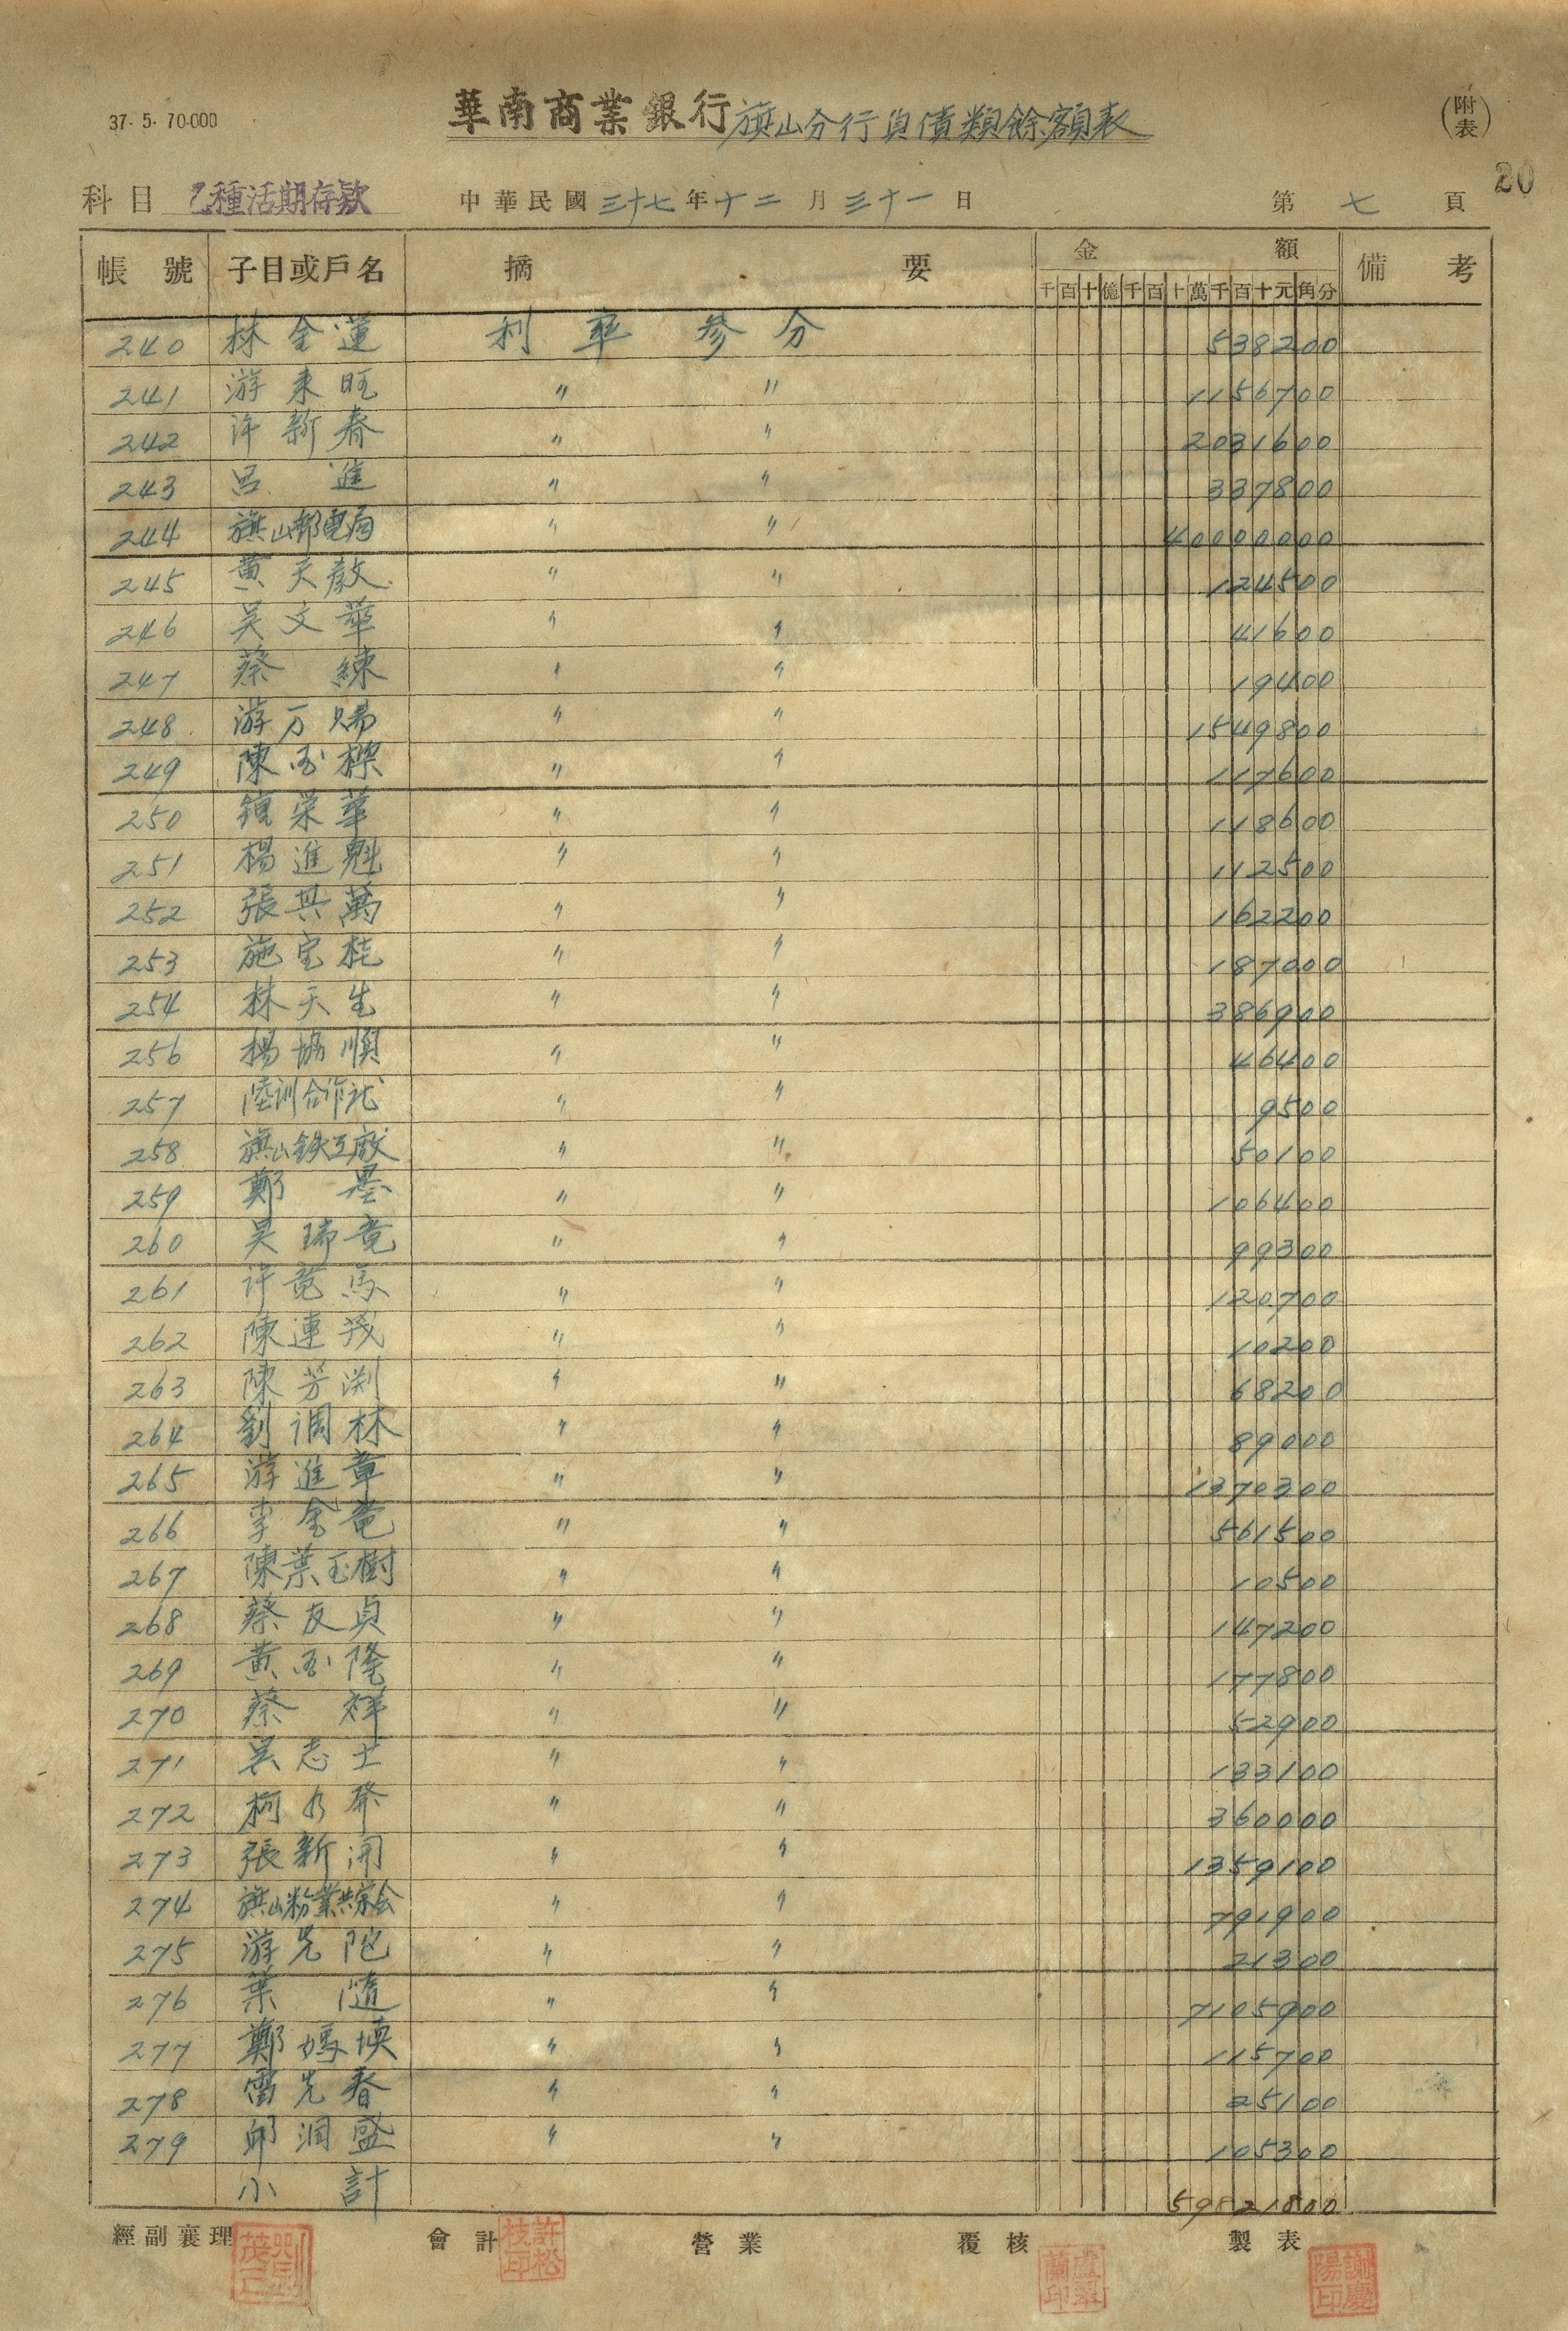 37. 5. 70.000
華南商業銀行旗山分行負債類餘額表
(附表)
20
科目 乙種活期存款 中華民國三十七年十二月三十一日 第七頁
帳號 子目或戶名 摘要 金額 備考
千百十億千百十萬千百十元角分
240 林金蓮 利率參分 538200
241 游來旺 〃 〃 1156700
242 許新春 〃 〃 2031600
243 呂進 〃 〃 337800
244 旗山郵電局 〃 〃 40000000
245 黃天教 〃 〃 124500
246 吳文華 〃 〃 41600
247 蔡練 〃 〃 19400
248 游万賜 〃 〃 1549800
249 陳西樑 〃 〃 117600
250 鐘荣華 〃 〃 118600
251 楊進魁 〃 〃 112500
252 張其萬 〃 〃 162200
253 施宝桂 〃 〃 187000
254 林天生 〃 〃 386900
256 楊協順 〃 〃 46400
257 陸訓合作社 〃 〃 9500
258 旗山鉄工廠 〃 〃 50100
259 鄭墨 〃 〃 106400
260 吳瑞竜 〃 〃 99300
261 許竜馬 〃 〃 120700
262 陳連茂 〃 〃 10200
263 陳芳渕 〃 〃 68200
264 劉調林 〃 〃 89000
265 游進章 〃 〃 1370300
266 李金竜 〃 〃 561500
267 陳葉玉樹 〃 〃 10500
268 蔡友貞 〃 〃 147200
269 黃西隆 〃 〃 177800
270 蔡祥 〃 〃 52900
271 吳志士 〃 〃 133100
272 柯水發 〃 〃 360000
273 張新開 〃 〃 1359100
274 旗山粉業共榮会 〃 〃 791900
275 游先陀 〃 〃 21300
276 葉隨 〃 〃 7105900
277 鄭媽煥 〃 〃 115700
278 雷先春 〃 〃 25100
279 邱潤盛 〃 〃 105300
小計 59821800
經副襄理 會計 營業 覆核 製表
許松枝印 盧翠蘭印 謝慶陽印